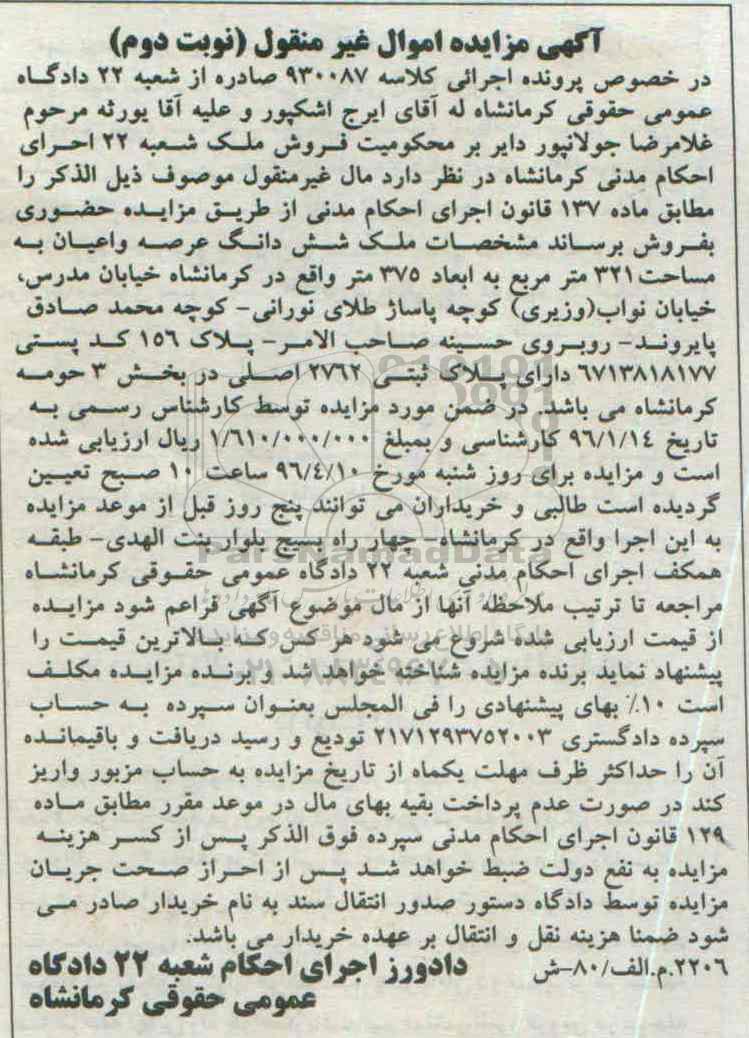 آگهی مزایده اموال غیر منقول (نوبت دوم)
در خصوص پرونده اجرائی کلاسه ۹۳۰۰۸۷ صادره از شعبه ۲۲ دادگاه
عمومی حقوقی کرمانشاه له آقای ایرج اشکپور و علیه آقا یورثه مرحوم
غلامرضا جولانپور دایر بر محکومیت فروش ملک شعبه ۲۲ احرای
احکام مدنی کرمانشاه در نظر دارد مال غیرمنقول موصوف ذیل الذکر را
مطابق ماده ۱۳۷ قانون اجرای احکام مدنی از طریق مزایده حضوری
بفروش برساند مشخصات ملک شش دانگ عرصه واعیان به
مساحت ۳۲۱ متر مربع به ابعاد ۳۷۵ متر واقع در کرمانشاه خیابان مدرس،
خیابان نواب(وزیری) کوچه پاساژ طلای نورانی- کوچه محمد صادق
پایروند- روبروی حسینه صاحب الامر- پلاک ۱۵۶ کد پستی
۶۷۱۳۸۱۸۱۷۷ دارای پلاک ثبتی ۲۷۶۲ اصلی در بخش ۳ حومه
کرمانشاه می باشد. در ضمن مورد مزایده توسط کارشناس رسمی به
تاریخ ۹۶/۱/۱۴ کارشناسی و بمبلغ ۱/۶۱۰/۰۰۰/۰۰۰ ریال ارزیابی شده
است و مزایده برای روز شنبه مورخ ۹۶/٤/۱۰ ساعت ۱۰ صبح تعیین
گردیده است طالبی و خریداران می توانند پنج روز قبل از موعد مزایده
به این اجرا واقع در کرمانشاه- چهار راه بسیج بلوار بنت الهدی- طبقه
همکف اجرای احکام مدنی شعبه ۲۲ دادگاه عمومی حقوقی کرمانشاه
مراجعه تا ترتیب ملاحظه آنها از مال موضوع آگهی فراعم شود مزایده
از قیمت ارزیابی شده شروع می شود هر کس که بالاترین قیمت را
پیشنهاد نماید برنده مزایده شناخته خواهد شد و برنده مزایده مکلف
است ۱۰٪ بهای پیشنهادی را فی المجلس بعنوان سپرده به حساب
سپرده دادگستری ۲۱۷۱۲۹۳۷۵۲۰۰۳ تودیع و رسید دریافت و باقیمانده
آن را حداکثر ظرف مهلت یکماه از تاریخ مزایده به حساب مزبور واریز
کند در صورت عدم پرداخت بقیه بهای مال در موعد مقرر مطابق ماده
۱۲۹ قانون اجرای احکام مدنی سپرده فوق الذکر پس از کسر هزینه
مزایده به نفع دولت ضبط خواهد شد پس از احراز صحت جریان
مزایده توسط دادگاه دستور صدور انتقال سند به نام خریدار صادر می
شود ضمنا هزینه نقل و انتقال بر عهده خریدار می باشد.
۲۲۰۶.م.الف/۸۰-ش دادورز اجرای احکام شعبه ۲۲ دادگاه
عمومی حقوقی کرمانشاه
ParsNamadData